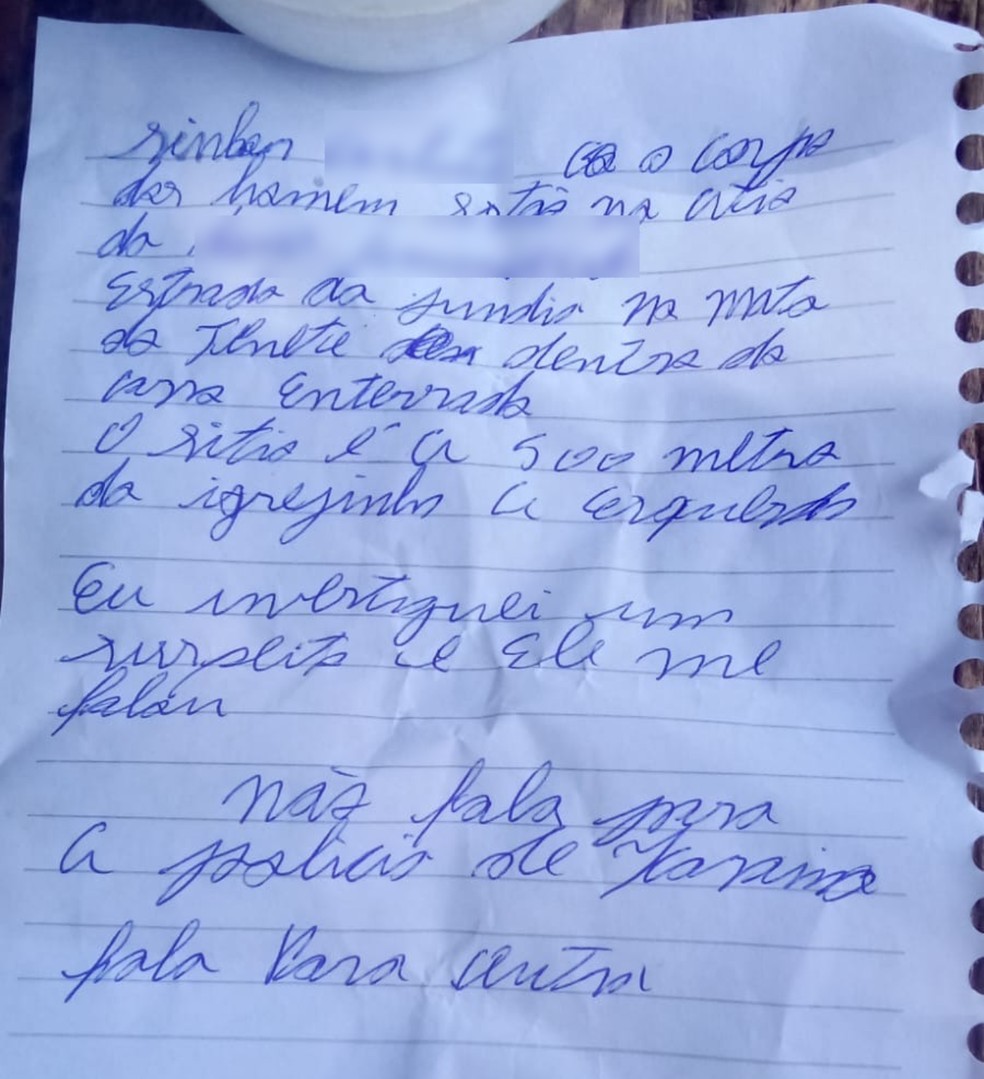 sinhor o corpo
dos homem estão na átia
da
Estrada da jundia na mata
da Tenete dentro da
casa Enterrada
O sitio é a 500 metro
da igrejinha a esquerda
Eu investiguei um
surpeito e Ele me
falou
não fala para
a policia de Icaraima
fala Para outra